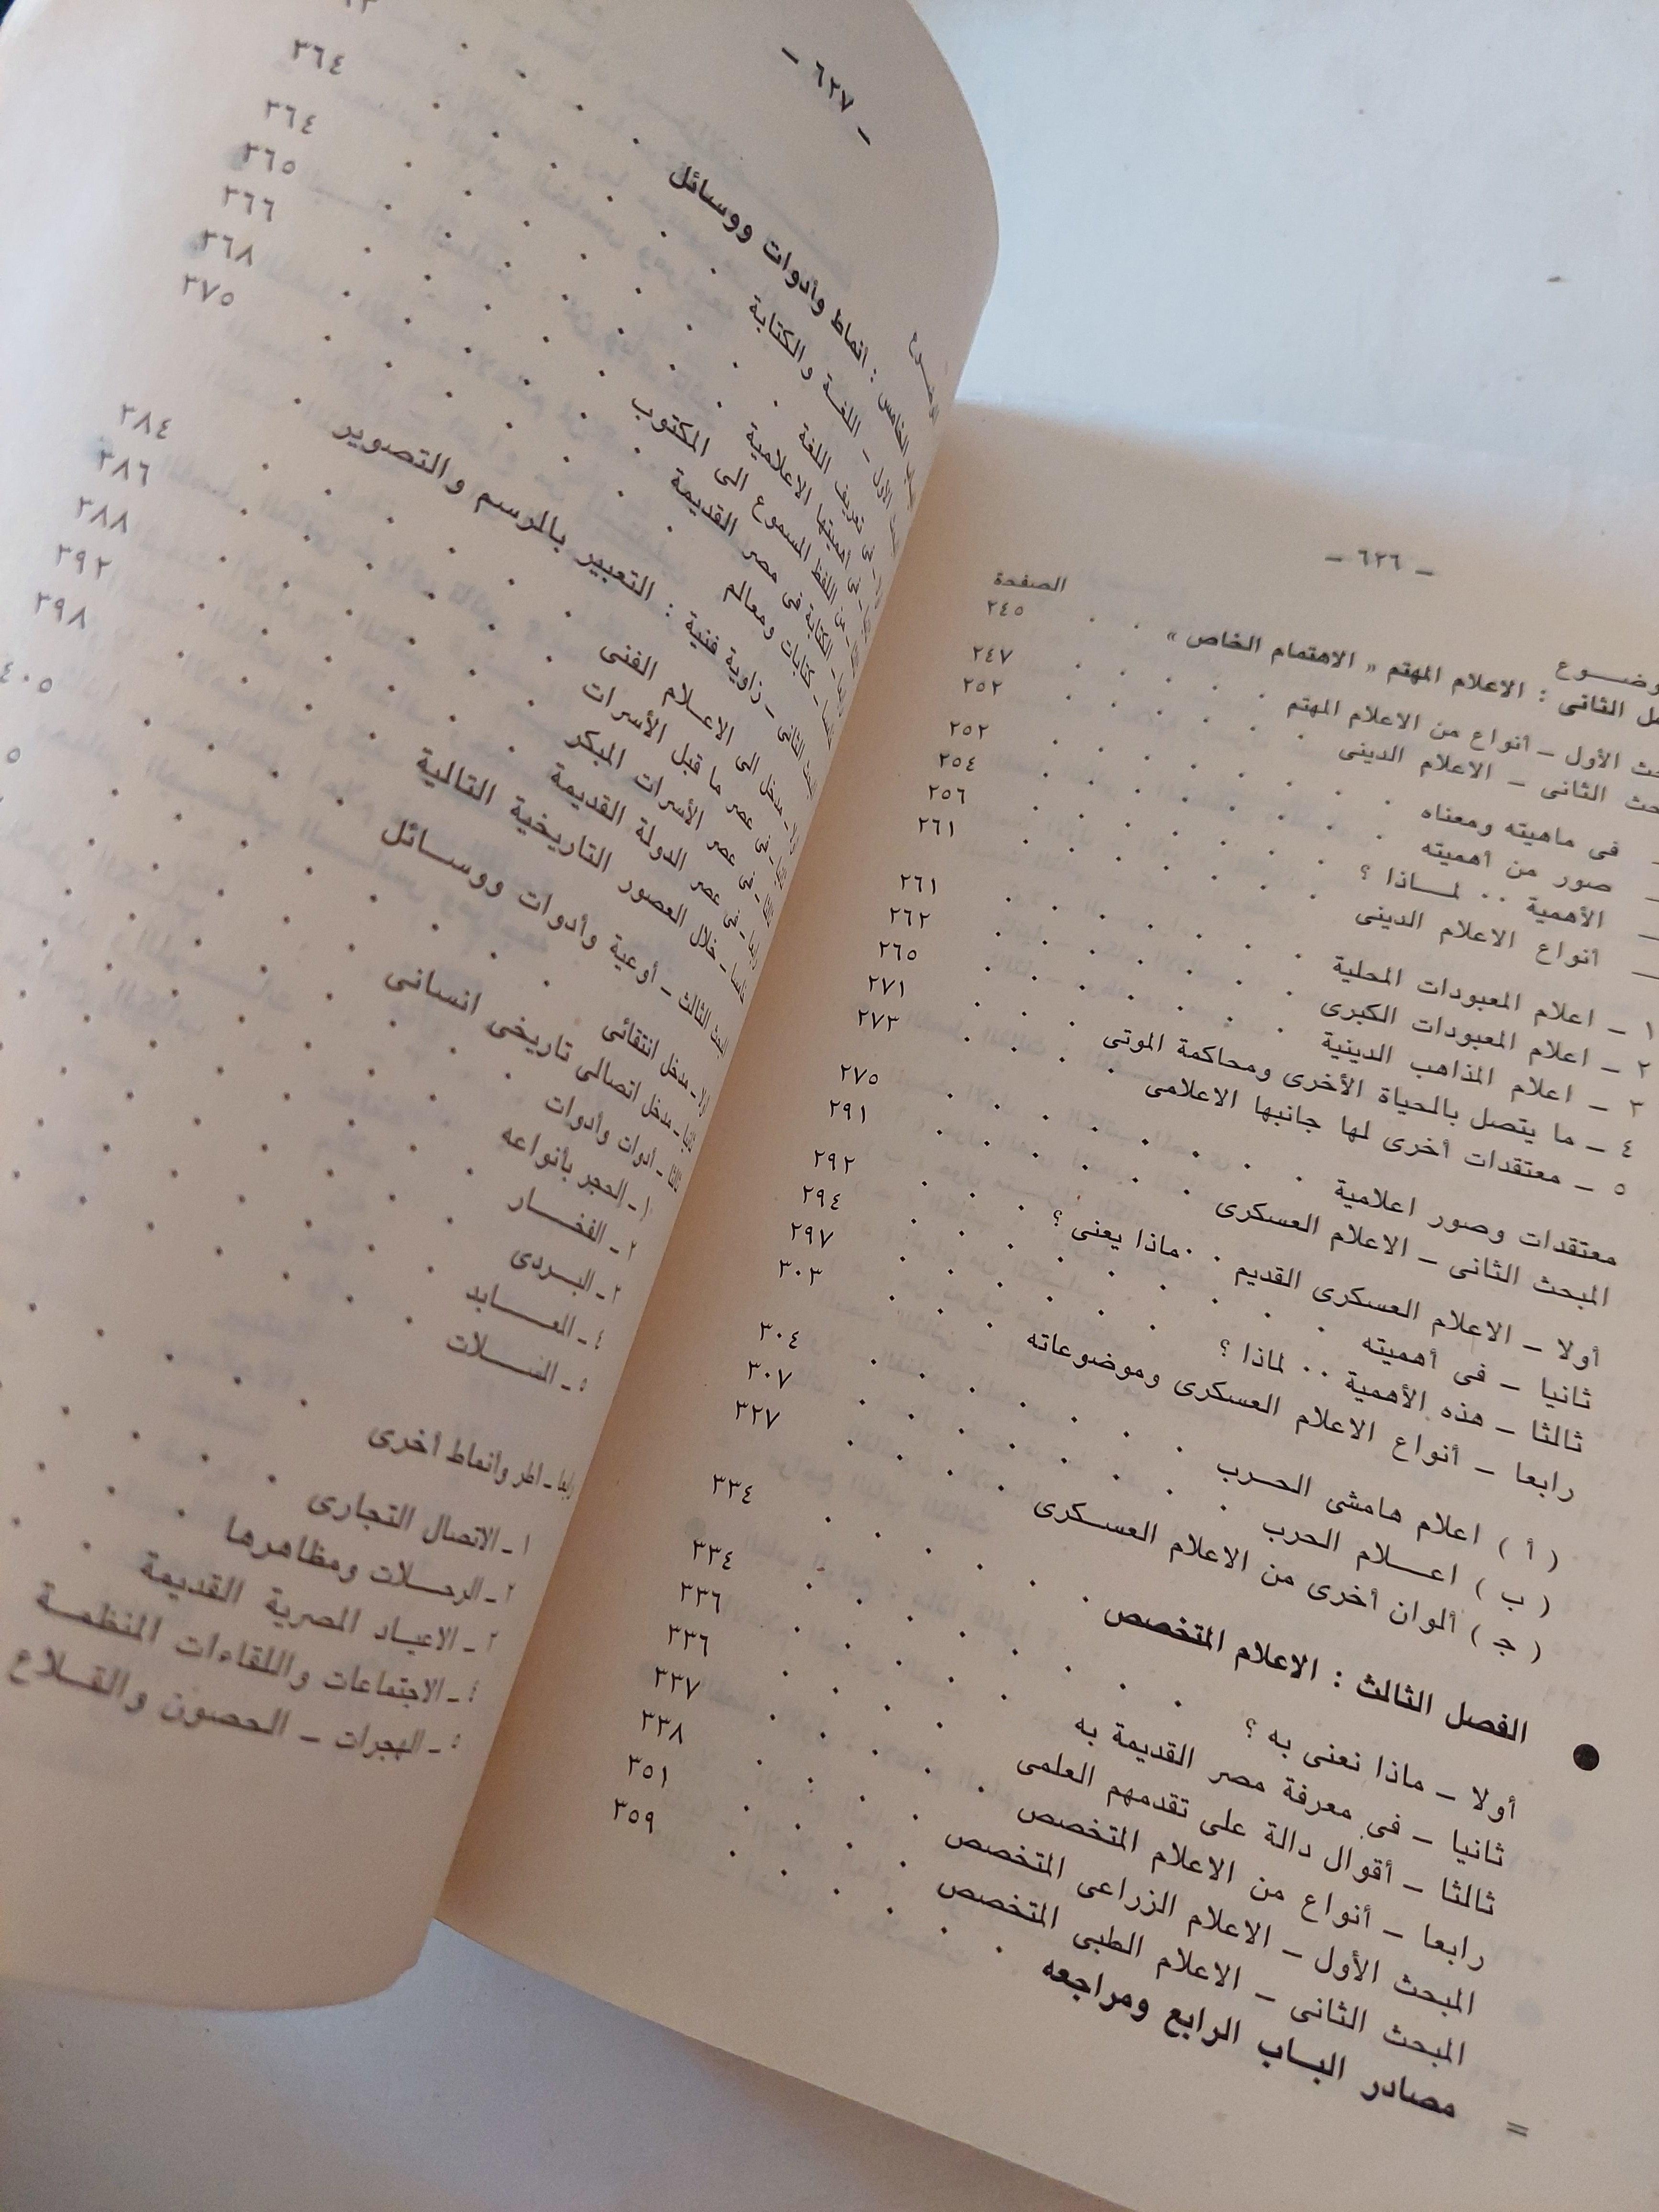 — ٦٢٦ —
الصفحة
الثانى : الاعلام المهتم « الاهتمام الخاص » . . ٢٤٥
الأول — أنواع من الاعلام المهتم . . . . ٢٤٧
الثانى — الاعلام الدينى . . . . ٢٥٢
فى ماهيته ومعناه . . . . ٢٥٢
صور من أهميته . . . . ٢٥٤
الأهمية . . لمــاذا ؟ . . . . ٢٥٦
أنواع الاعلام الدينى . . . . ٢٦١
١ — اعلام المعبودات المحلية . . . . ٢٦١
٢ — اعلام المعبودات الكبرى . . . . ٢٦٢
٣ — اعلام المذاهب الدينية . . . . ٢٦٥
٤ — ما يتصل بالحياة الأخرى ومحاكمة الموتى . . ٢٧١
٥ — معتقدات أخرى لها جانبها الاعلامى . . ٢٧٣
معتقدات وصور اعلامية . . . . ٢٧٥
المبحث الثانى — الاعلام العسكرى . . . . ٢٩١
أولا — الاعلام العسكرى القديم . . ماذا يعنى ؟ . . ٢٩٢
ثانيا — فى أهميته . . . . ٢٩٤
ثالثا — هذه الأهمية . . لماذا ؟ . . . . ٢٩٧
رابعا — أنواع الاعلام العسكرى وموضوعاته . . ٣٠٣
( أ ) اعلام هامشى الحــرب . . . . ٣٠٤
( ب ) اعــلام الحرب . . . . ٣٠٧
( ج ) ألوان أخرى من الاعلام العسـكرى . . ٣٢٧
الفصل الثالث : الاعلام المتخصص . . . . ٣٣٤
أولا — ماذا نعنى به ؟ . . . . ٣٣٤
ثانيا — فى معرفة مصر القديمة به . . . . ٣٣٦
ثالثا — أقوال دالة على تقدمهم العلمى . . . . ٣٣٦
رابعا — أنواع من الاعلام المتخصص . . . . ٣٣٧
المبحث الأول — الاعلام الزراعى المتخصص . . . . ٣٣٨
المبحث الثانى — الاعلام الطبى المتخصص . . . . ٣٥١
مصادر البـاب الرابع ومراجعه . . . . ٣٥٩
— ٦٢٧ —
الخامس : أنماط وأدوات ووسائل
الأول — اللغـة والكتابة ٣٦٤
فى تعريف اللغة ٣٦٤
فى أهميتها الاعلامية ٣٦٥
من اللفظ المسموع الى المكتوب ٣٦٦
الكتابة فى مصر القديمة ٣٦٨
كتابات ومعالم ٣٧٥
الثانى — زاوية فنية : التعبير بالرسم والتصوير
مدخل الى الاعـلام الفنى ٣٨٤
فى عصر ما قبل الأسرات ٣٨٦
فى عصر الأسرات المبكر ٣٨٨
رابعا — فى عصر الدولة القديمة ٣٩٢
خامسا — خلال العصور التاريخية التالية ٣٩٨
المبحث الثالث — أوعية وأدوات ووســائل ٤٠٥
أولا — مدخل انتقائى
ثانيا — مدخل اتصالى تاريخى انسانى
ثالثا — أدوات وأدوات
١ — الحجر بأنواعه
٢ — الفخــار
٣ — البـردى
٤ — المعــابد
٥ — المســلات
رابعا — أطر وأنماط أخرى
١ — الاتصال التجارى
٢ — الرحــلات ومظاهرها
٣ — الاعيـاد المصرية القديمة
٤ — الاجتماعات واللقاءات المنظمـة
٥ — الهجرات — الحصون والقــلاع